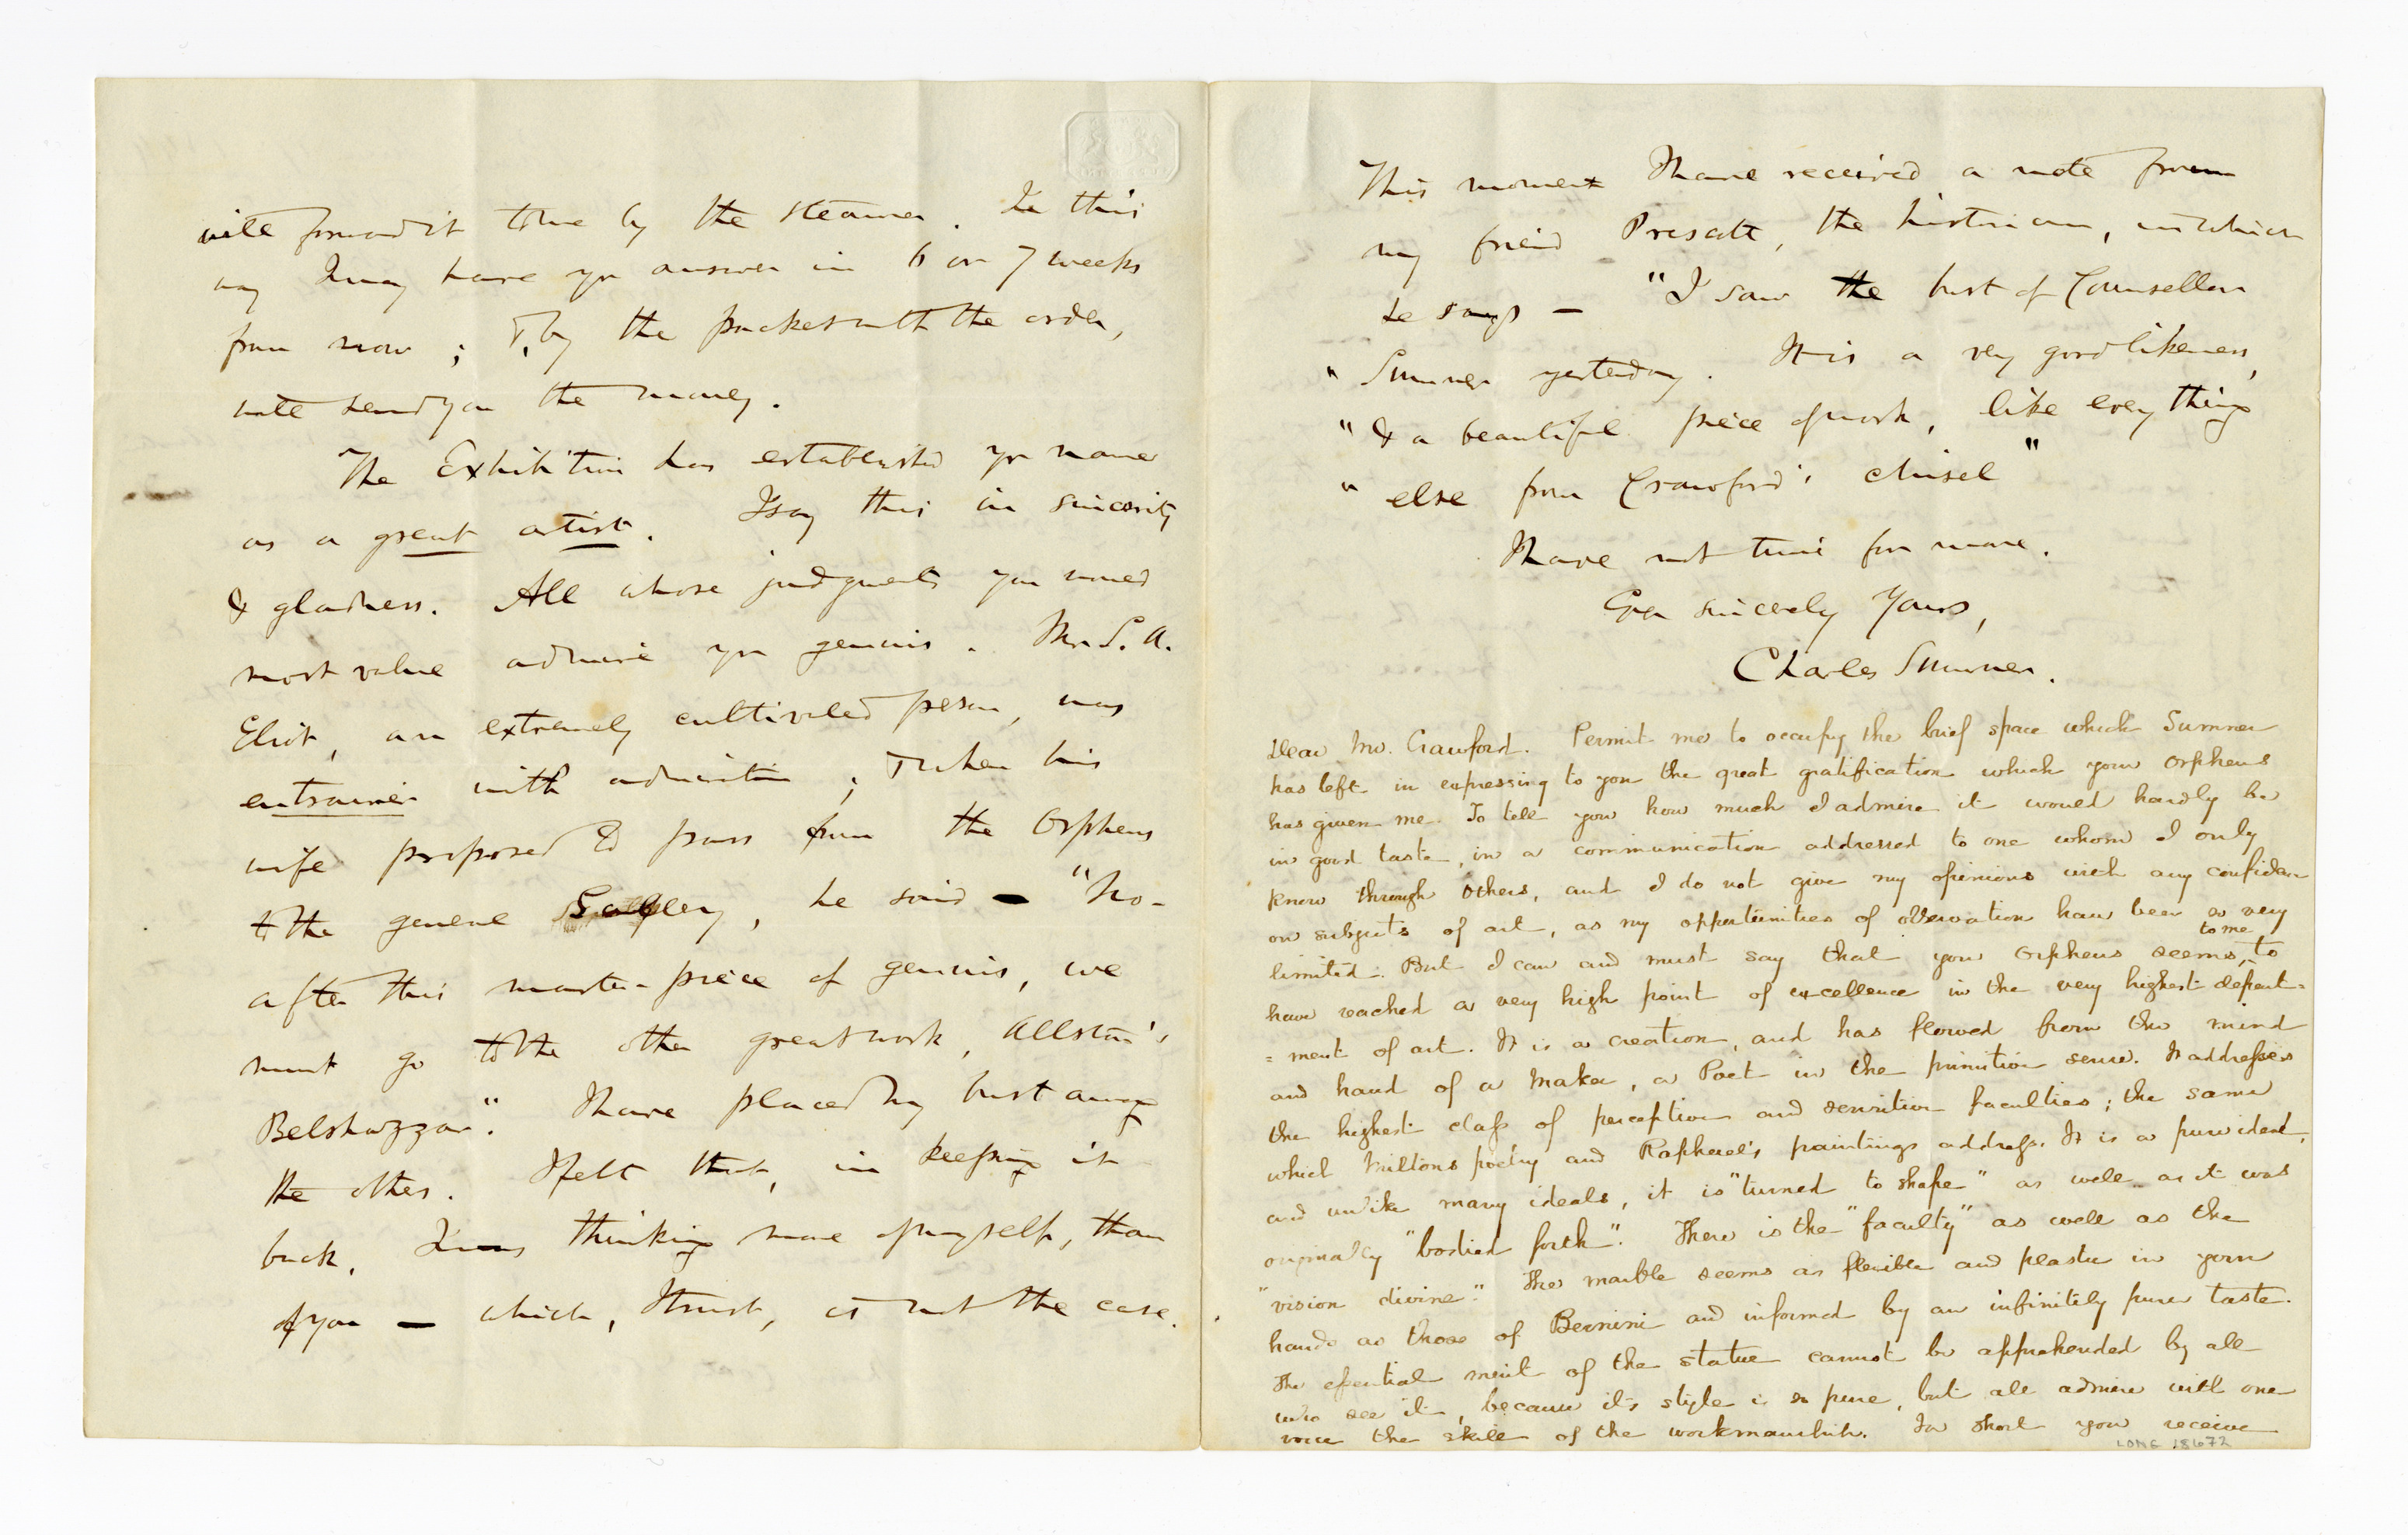 will forward it to me by the steamer. In this
way I may have yr answer in 6 or 7 weeks
from now; & by the packet with the order,
will send you the money.
The Exhibition has established yr name
as a great artist. I say this in sincerity
& gladness. All whose judgments you would
most value admire yr genius. Mr. S. A.
Eliot, an extremely cultivated person, was
entrainé with admiration; & when his
wife proposed to pass from the Orpheus
to the general Gallery, he said — "No—
after this master-piece of genius, we
must go to the other great work, Allston's
Belshazzar." I have placed my bust among
the others. I felt that, in keeping it
back, I was thinking more of myself, than
of you — which, I trust, is not the case.
This moment I have received a note from
my friend Prescott, the historian, in which
he says — "I saw the bust of Counsellor
" Sumner yesterday. It is a very good likeness,
" & a beautiful piece of work, like every thing
" else from Crawford's chisel"
I have not time for more.
Ever sincerely Yours,
Charles Sumner.
Dear Mr. Crawford. Permit me to occupy the brief space which Sumner
has left in expressing to you the great gratification which your Orpheus
has given me. To tell you how much I admire it would hardly be
in good taste, in a communication addressed to one whom I only
know through others, and I do not give my opinions with any confidence
on subjects of art, as my opportunities of observation have been so very
limited. But I can and must say that your Orpheus seems to me to
have reached a very high point of excellence in the very highest depart=
=ment of art. It is a creation, and has flowed from the mind
and hand of a Maker, a Poet in the primitive sense. It addresses
the highest class of perceptive and sensitive faculties; the same
which Miltons poetry and Raphael's paintings address. It is a pure ideal,
and unlike many ideals, it is "turned to shape" as well as it was
originally "bodied forth". There is the "faculty" as well as the
"vision divine". The marble seems as flexible and plastic in your
hands as those of Bernini and informed by an infinitely purer taste.
The essential merit of the statue cannot be apprehended by all
who see it, because its style is so pure, but all admire with one
voice the skill of the workmanship. In short you receive
LONG 18672